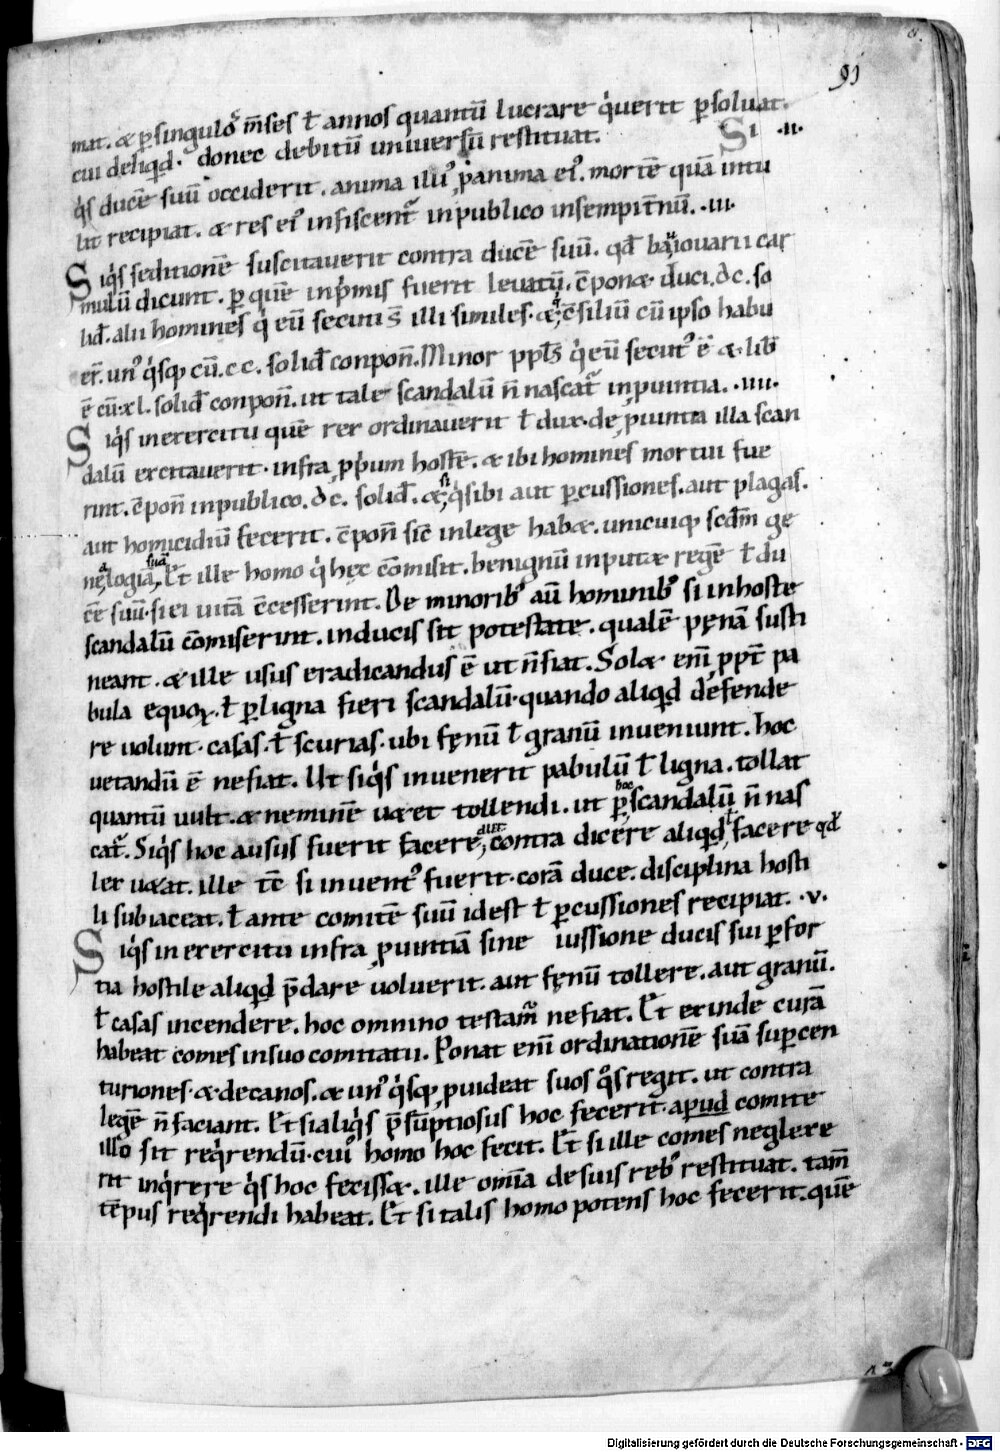 91
mat. & p̱singulos m̅ses ł annos quantū lucrare q̓uerit p̱soluat.
cui deliq̱d. donec debitū uniuersū restituat. Si .ii.
q̓s ducē suū occiderit. anima illi᷒ p̱ anima ei᷒. mortē quā intu
lit recipiat. & res ei᷒ infiscent᷑ inpublico insempit̅nū. .iii.
Siq̓s seditionē suscitauerit contra ducē suū. qđ baiouarii car
mulū dicunt. p̱ quē inp̓mis fuerit leuatū, c̅pon& duci. dc. so
lid̅. alii homines q̓ eū secuti s̅ illi similes. &c̅siliū cū ipso habu
er̅. un᷒ q̓sq; cū .cc. solid̅ conpon̅. Minor pp̱ls̅ q̓ eū secut᷒ ē & lib̅
ē cū .xl. solid̅ conpon̅. ut tale scandalū n̅ nascat᷑ inpuintia. .iiii.
Siq̓s inexercitu quē rex ordinauerit ł dux. de p̱uintia illa scan
dalū excitauerit. infra p̱p̓um hostē. & ibi homines mortui fue
rint. c̅pon̅ inpublico. dc. solid̅. & q̓sibi aut p̱cussiones. aut plagas.
aut homicidiū fecerit. c̅pon̅ sic̅ inlege hab&. unicuiq; scd̅m ge
nęlogiā suā. Et ille homo q̓ hęc c̅misit. benignū input& regē ł du
cē suū. si ei uitā c̅cesserint. De minorib᷒ aū hominib᷒ si inhoste
scandalū c̅miserint. inducis sit potestate. qualē pęnā susti
neant. & ille usus eradicandus ē ut n̅ fiat. Sol& eni̅ ppt̅ pa
bula equoꝝ. ł p̱ligna fieri scandalū. quando aliq̱d defende
re uolunt. casas. ł scurias. ubi fęnū ł granū inueniunt. hoc
uetandū ē nefiat. Ut siq̓s inuenerit pabulū ł ligna. tollat
quantū uult. & neminē u&et tollendi. ut p̱ hoc scandalū n̅ nas
cat᷑. Siq̓s hoc ausus fuerit facere, aut contra dicere aliq̱d ł facere qđ
lex u&at. ille tc̅ si inuent᷒ fuerit. corā duce. disciplina hosti
li subiaceat. ł ante comitē suū idest ł p̱cussiones recipiat. .v.
Siq̓s in exercitu infra p̱uintiā sine iussione ducis sui p̱for
tia hostile aliq̱d p̅dare uoluerit. aut fęnū tollere. aut granū.
ł casas incendere. hoc omnino testam᷑ nefiat. Et exinde curā
habeat comes insuo comitatu. Ponat eni̅ ordinationē suā sup̱ cen
turiones. & decanos. & un᷒ q̓sq; p̱uideat suos q̊s regit. ut contra
legē n̅ faciant. Et si aliq̓s p̅sūptiosus hoc fecerit. apud comite
illo sit req̓rendū. cui᷒ homo hoc fecit. Et si ille comes neglexe
rit inq̓rere q̓s hoc feciss&. ille omīa de suis reb᷒ restituat. tam̅
tēpus req̓rendi habeat. Et si talis homo potens hoc fecerit. quē
Digitalisierung gefördert durch die Deutsche Forschungsgemeinschaft - DFG